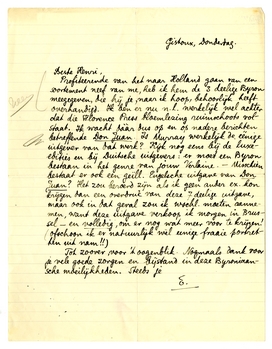 Gistoux, Donderdag.
Beste Henri,
Profiteerende van het naar Holland gaan van een
neef van me, heb ik hem de 3 deelige Byron
meegegeven, die hij je naar ik hoop, behoorlijk heeft
overhandigd. Ik ben er nl. werkelijk wel achter
dat die Florence Press Bloemlezing ruimschoots vol-
staat. Ik wacht dus op en de nadere berichten
betreffende Don Juan. Is Murray werkelijk de eenige
uitgever van dat werk? Kijk nog eens bij de luxe-
edities en bij Duitsche uitgevers; er moet een Byron
bestaan in het genre van jouw Verlaine - misschien
bestaat er ook een geill. Engelsche uitgave van Don
Juan? Het zou beroerd zijn als ik geen ander ex. kon
krijgen dan een overdruk van deze 7 deelige uitgave,
maar ook in dat geval zou ik wocht. moeten aanne-
men, want deze uitgave verkoop ik morgen in Brus-
sel - en volledig, om er nog wat meer voor te krijgen!
(ofschoon ik er natuurlijk wel eenige fraaie portret-
ten uit nam!!)
Tot zoover voor 't oogenblik. Nogmaals dank voor
je vele goede zorgen en bijstand in deze Byroniaan-
sche moeilijkheden. Steeds je
E.